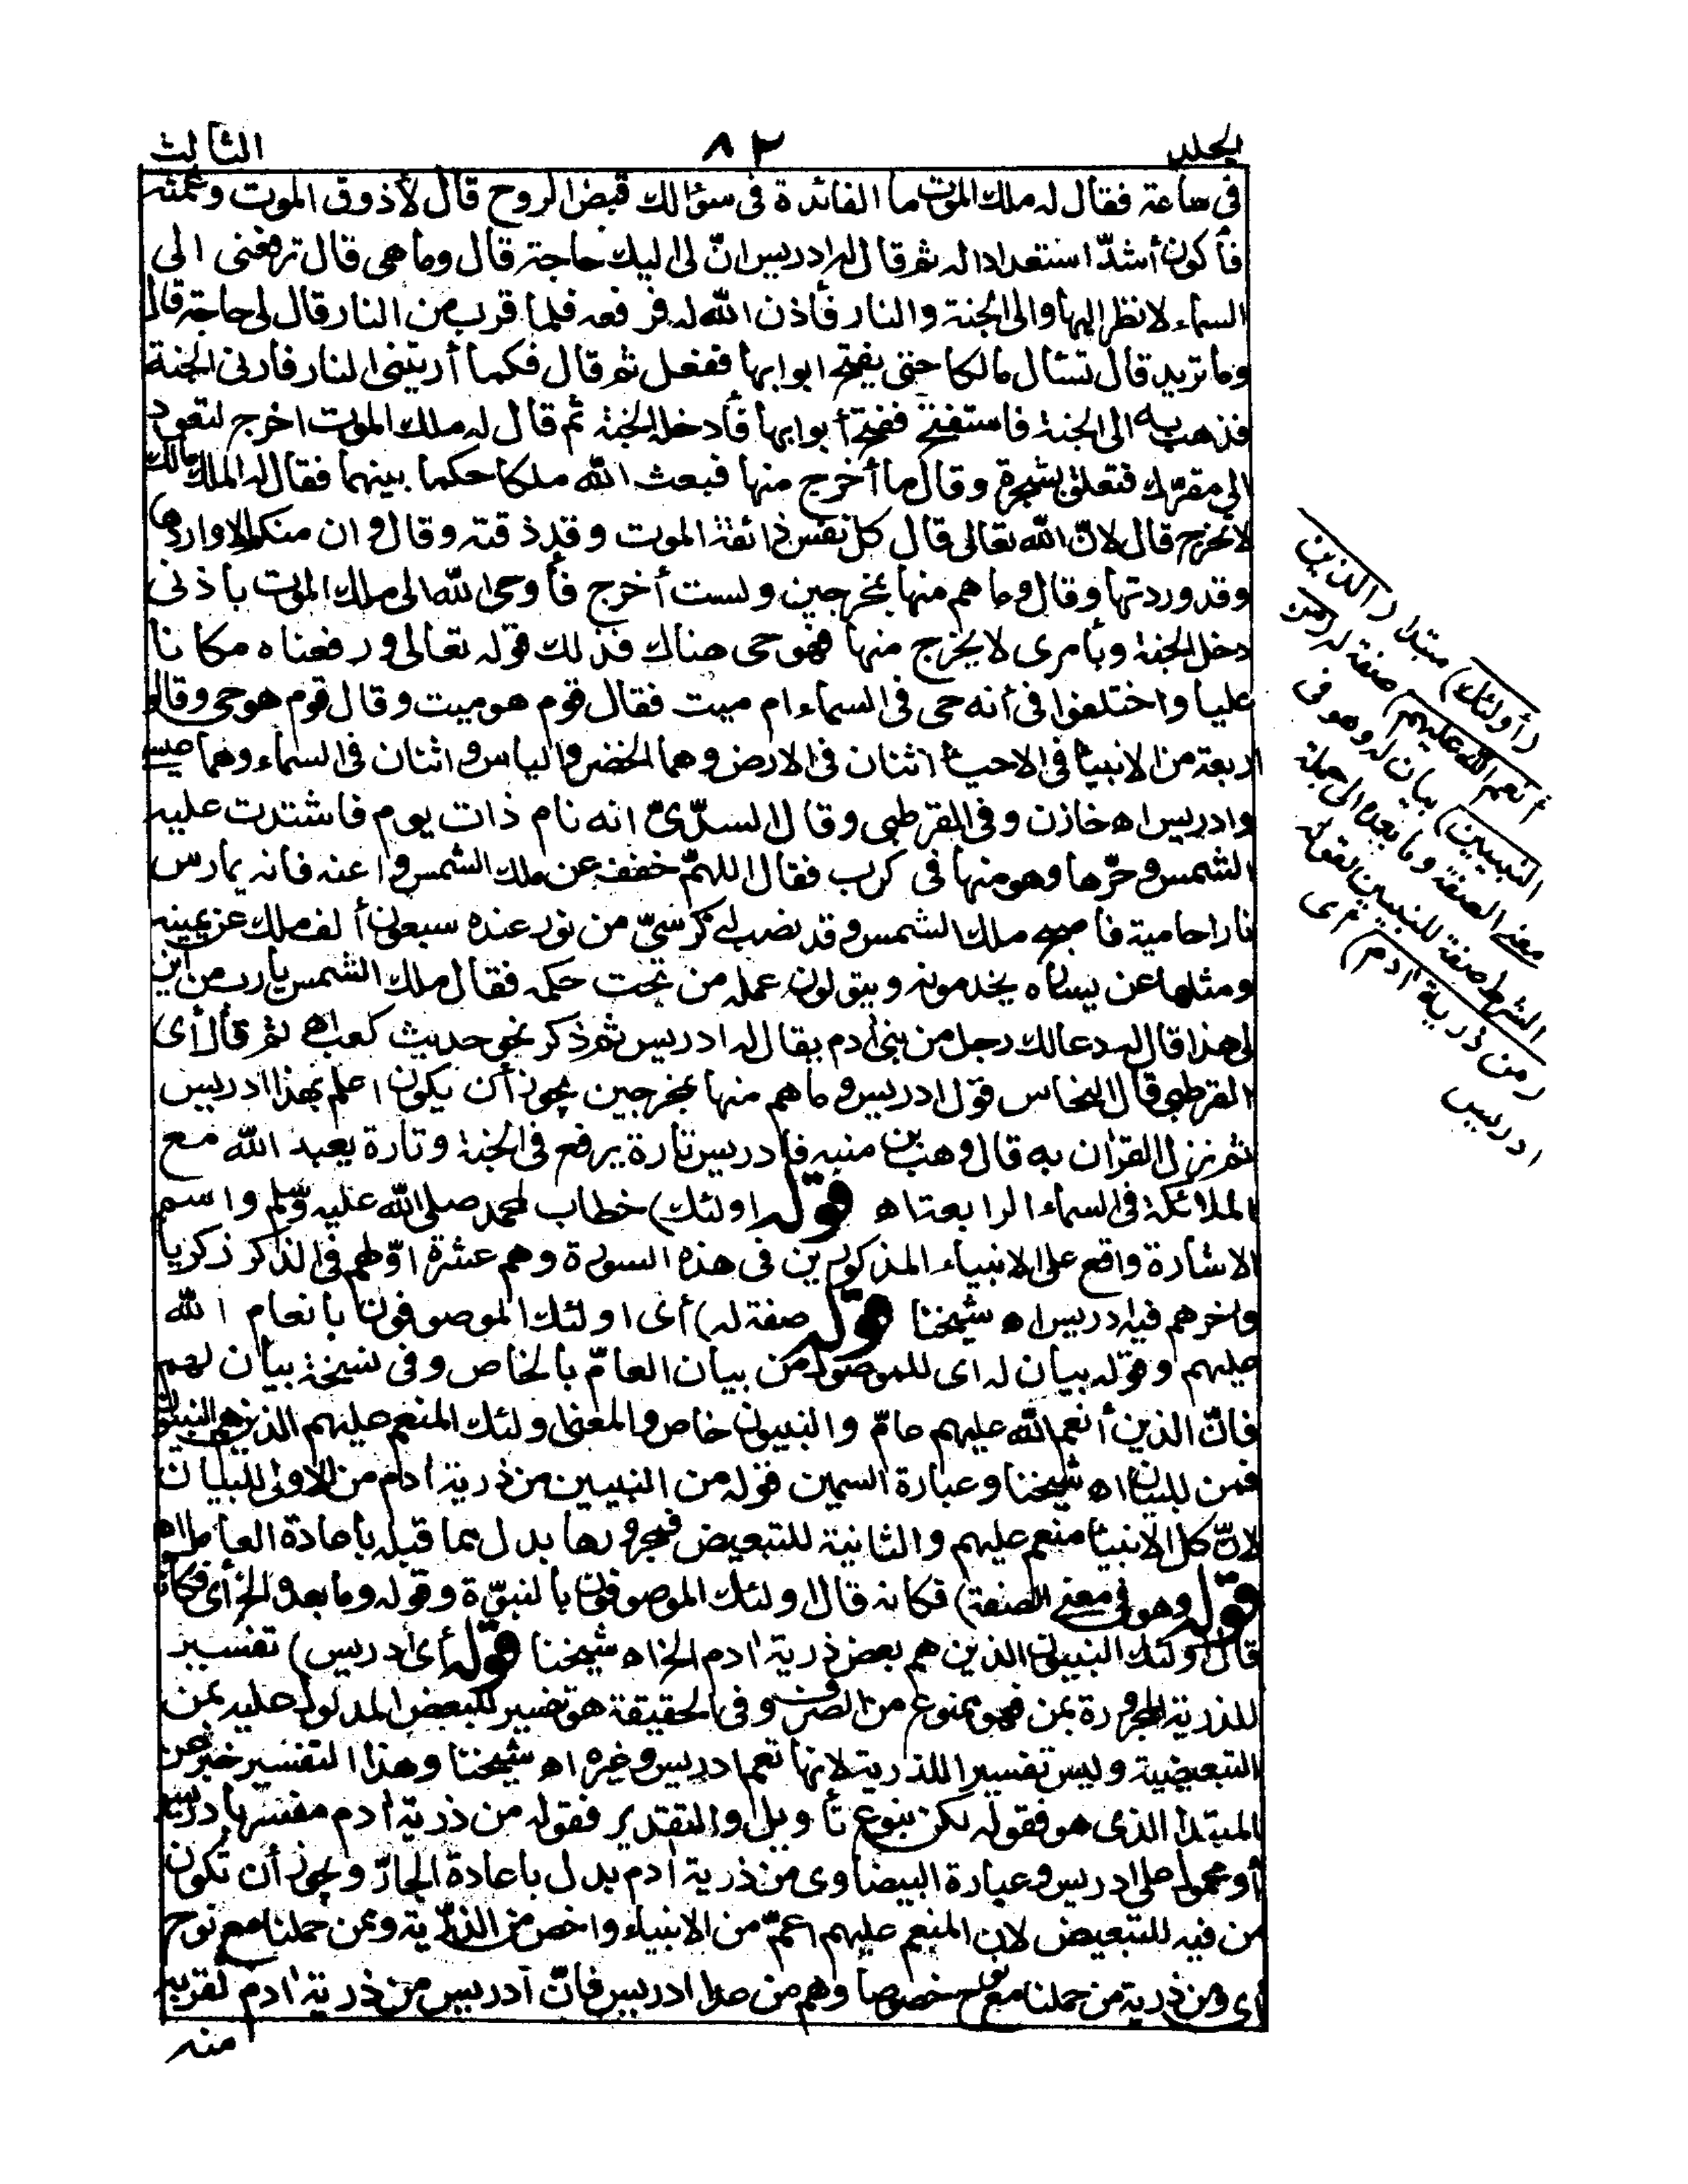 الجلد ٨٢ الثالث
في ساعة فقال له ملك الموت ما الفائدة فى سؤالك قبض الروح قال لأذوق الموت وغمته
فأكون أشدّ استعدادا له ثم قال له ادريس انّ لى اليك حاجة قال وما هى قال ترفعنى الى
السماء لانظر اليها والى الجنة والنار فأذن الله له فرفعه فلما قرب من النار قال لى حاجة قال
وما تريد قال تسئال مالكا حتى يفتح ابوابها ففعل ثم قال فكما أريتنى النار فارنى الجنة
فذهب به الى الجنة فاستفتح ففتح أبوابها فأدخله الجنة ثم قال له ملك الموت اخرج لتعود
الى مقرّك فتعلق بشجرة وقال ما أخرج منها فبعث الله ملكا حكما بينهما فقال له الملك مالك
لا تخرج قال لانّ الله تعالى قال كل نفس ذائقة الموت وقد ذقته وقال وان منكم الا واردها
وقد وردتها وقال وما هم منها بمخرجين ولست أخرج فأوحى الله الى ملك الموت باذنى
دخل الجنة وبأمرى لا يخرج منها فهو حى هناك فذلك قوله تعالى ورفعناه مكانا
عليا واختلفوا فى أنه حى فى السماء ام ميت فقال قوم هو ميت وقال قوم هو حى وقالو
اربعة من الانبيا فى الاحيا اثنان فى الارض وهما الخضر والياس واثنان فى السماء وهما عيسى
وادريس اه خازن وفى القرطبى وقال السدّىّ انه نام ذات يوم فاشتدت عليه
الشمس وحرّها وهو منها فى كرب فقال اللهمّ خفف عن ملك الشمس واعنه فانه يمارس
نارا حامية فأصبح ملك الشمس وقد نصب له كرسىّ من نور عنده سبعون ألف ملك عن يمينه
ومثلها عن يساره يخدمونه ويتولون عمله من تحت حكمه فقال ملك الشمس يا رب من أين
لى هذا قال له دعا لك رجل من بنى ادم يقال له ادريس ثم ذكر نحو حديث كعب اه ثم قال أى
القرطبى قال النحاس قول ادريس وما هم منها بمخرجين يجوز أن يكون اعلم بهذا ادريس
ثم نزل القرآن به قال وهب بن منبه فادريس تارة يرفع فى الجنة وتارة يعبد الله مع
الملائكة فى السماء الرابعة اه قوله اولئك) خطاب لمحمد صلى الله عليه وسلم واسم
الاشارة واقع على الانبياء المذكورين فى هذه السورة وهم عشرة اوّلهم فى الذكر زكريا
واخرهم فيه ادريس اه شيخنا قوله صفة له) أى اولئك الموصوفون بانعام الله
عليهم وقوله بيان له اى للموصول من بيان العامّ بالخاص وفى نسخة بيان لهم
فانّ الذين أنعم الله عليهم عامّ والنبيون خاص والمعنى اولئك المنعم عليهم الذين هم النبيون
فمن للبيان اه شيخنا وعبارة السمين قوله من النبيين من ذرية ادم من الاولى للبيان
لانّ كل الانبيا منعم عليهم والثانية للتبعيض فمجرورها بدل مما قبله باعادة العامل اه
قوله وهو فى معنى الصفة) فكانه قال اولئك الموصوفون بالنبوّة وقوله وما بعده الخ أى فكانه
قال اولئك النبيون الذين هم بعض ذرية ادم الخ اه شيخنا قوله أى ادريس) تفسير
للذرية المجرورة بمن فهو ممنوع من الصرف وفى الحقيقة هو تفسير للبعض المدلول عليه بمن
التبعيضية وليس تفسيرا للذرية لانها تعم ادريس وغيره اه شيخنا وهذا التفسير خبر عن
المبتدا الذى هو فقوله لكن بنوع تأويل والتقدير فقوله من ذرية ادم مفسر بادريس
أو محمول على ادريس وعبارة البيضاوى من ذرية ادم بدل باعادة الجارّ ويجوز أن تكون
من فيه للتبعيض لان المنعم عليهم اعمّ من الانبياء واخص من الذرّية وممن حملنا مع نوح
اى ومن ذرية من حملنا مع نوح خصوصا وهم من عدا ادريس فانّ ادريس من ذرية ادم لقربه
منه
(أولئك) مبتدا (الذين
أنعم الله عليهم) صفة له (من
النبيين) بيان له وهو فى
معنى الصفة وما بعده الى جملة
الشرط صفة للنبيين فقوله
(من ذرية ادم) اى
ادريس